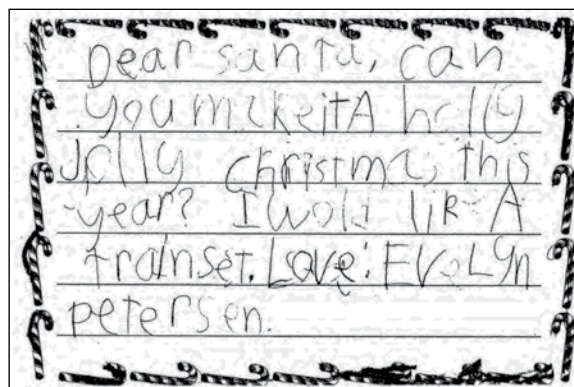 Dear santa, can
you makeitA holly
Jolly christmas this
year? I Wold lik A
trainset. Love: EVeLyn
petersen.